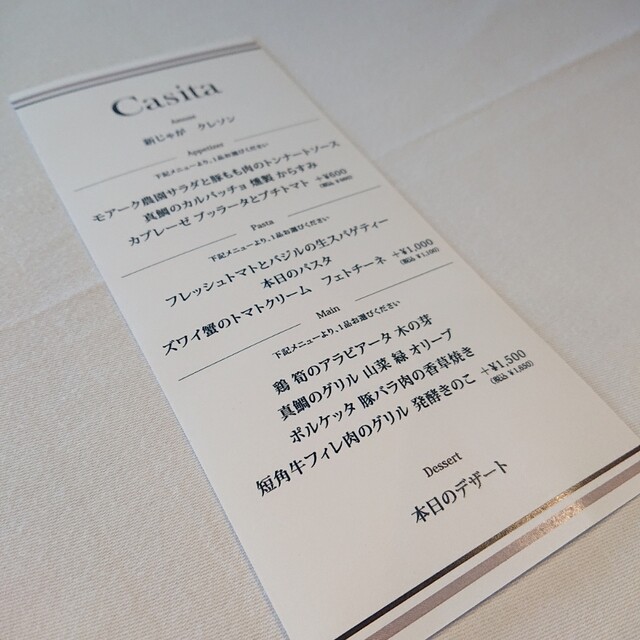 Casita
Amuse
新じゃが クレソン
Appetizer
下記メニューより、1品お選びください
モアーク農園サラダと豚もも肉のトンナートソース
真鯛のカルパッチョ 燻製 からすみ
カプレーゼ ブッラータとプチトマト +¥600
Pasta
下記メニューより、1品お選びください
フレッシュトマトとバジルの生スパゲティー
本日のパスタ
ズワイ蟹のトマトクリーム フェトチーネ +¥1,000
(税込 ¥1,100)
Main
下記メニューより、1品お選びください
鶏 筍のアラビアータ 木の芽
真鯛のグリル 山菜 緑 オリーブ
ポルケッタ 豚バラ肉の香草焼き
短角牛フィレ肉のグリル 発酵きのこ +¥1,500
(税込 ¥1,650)
Dessert
本日のデザート